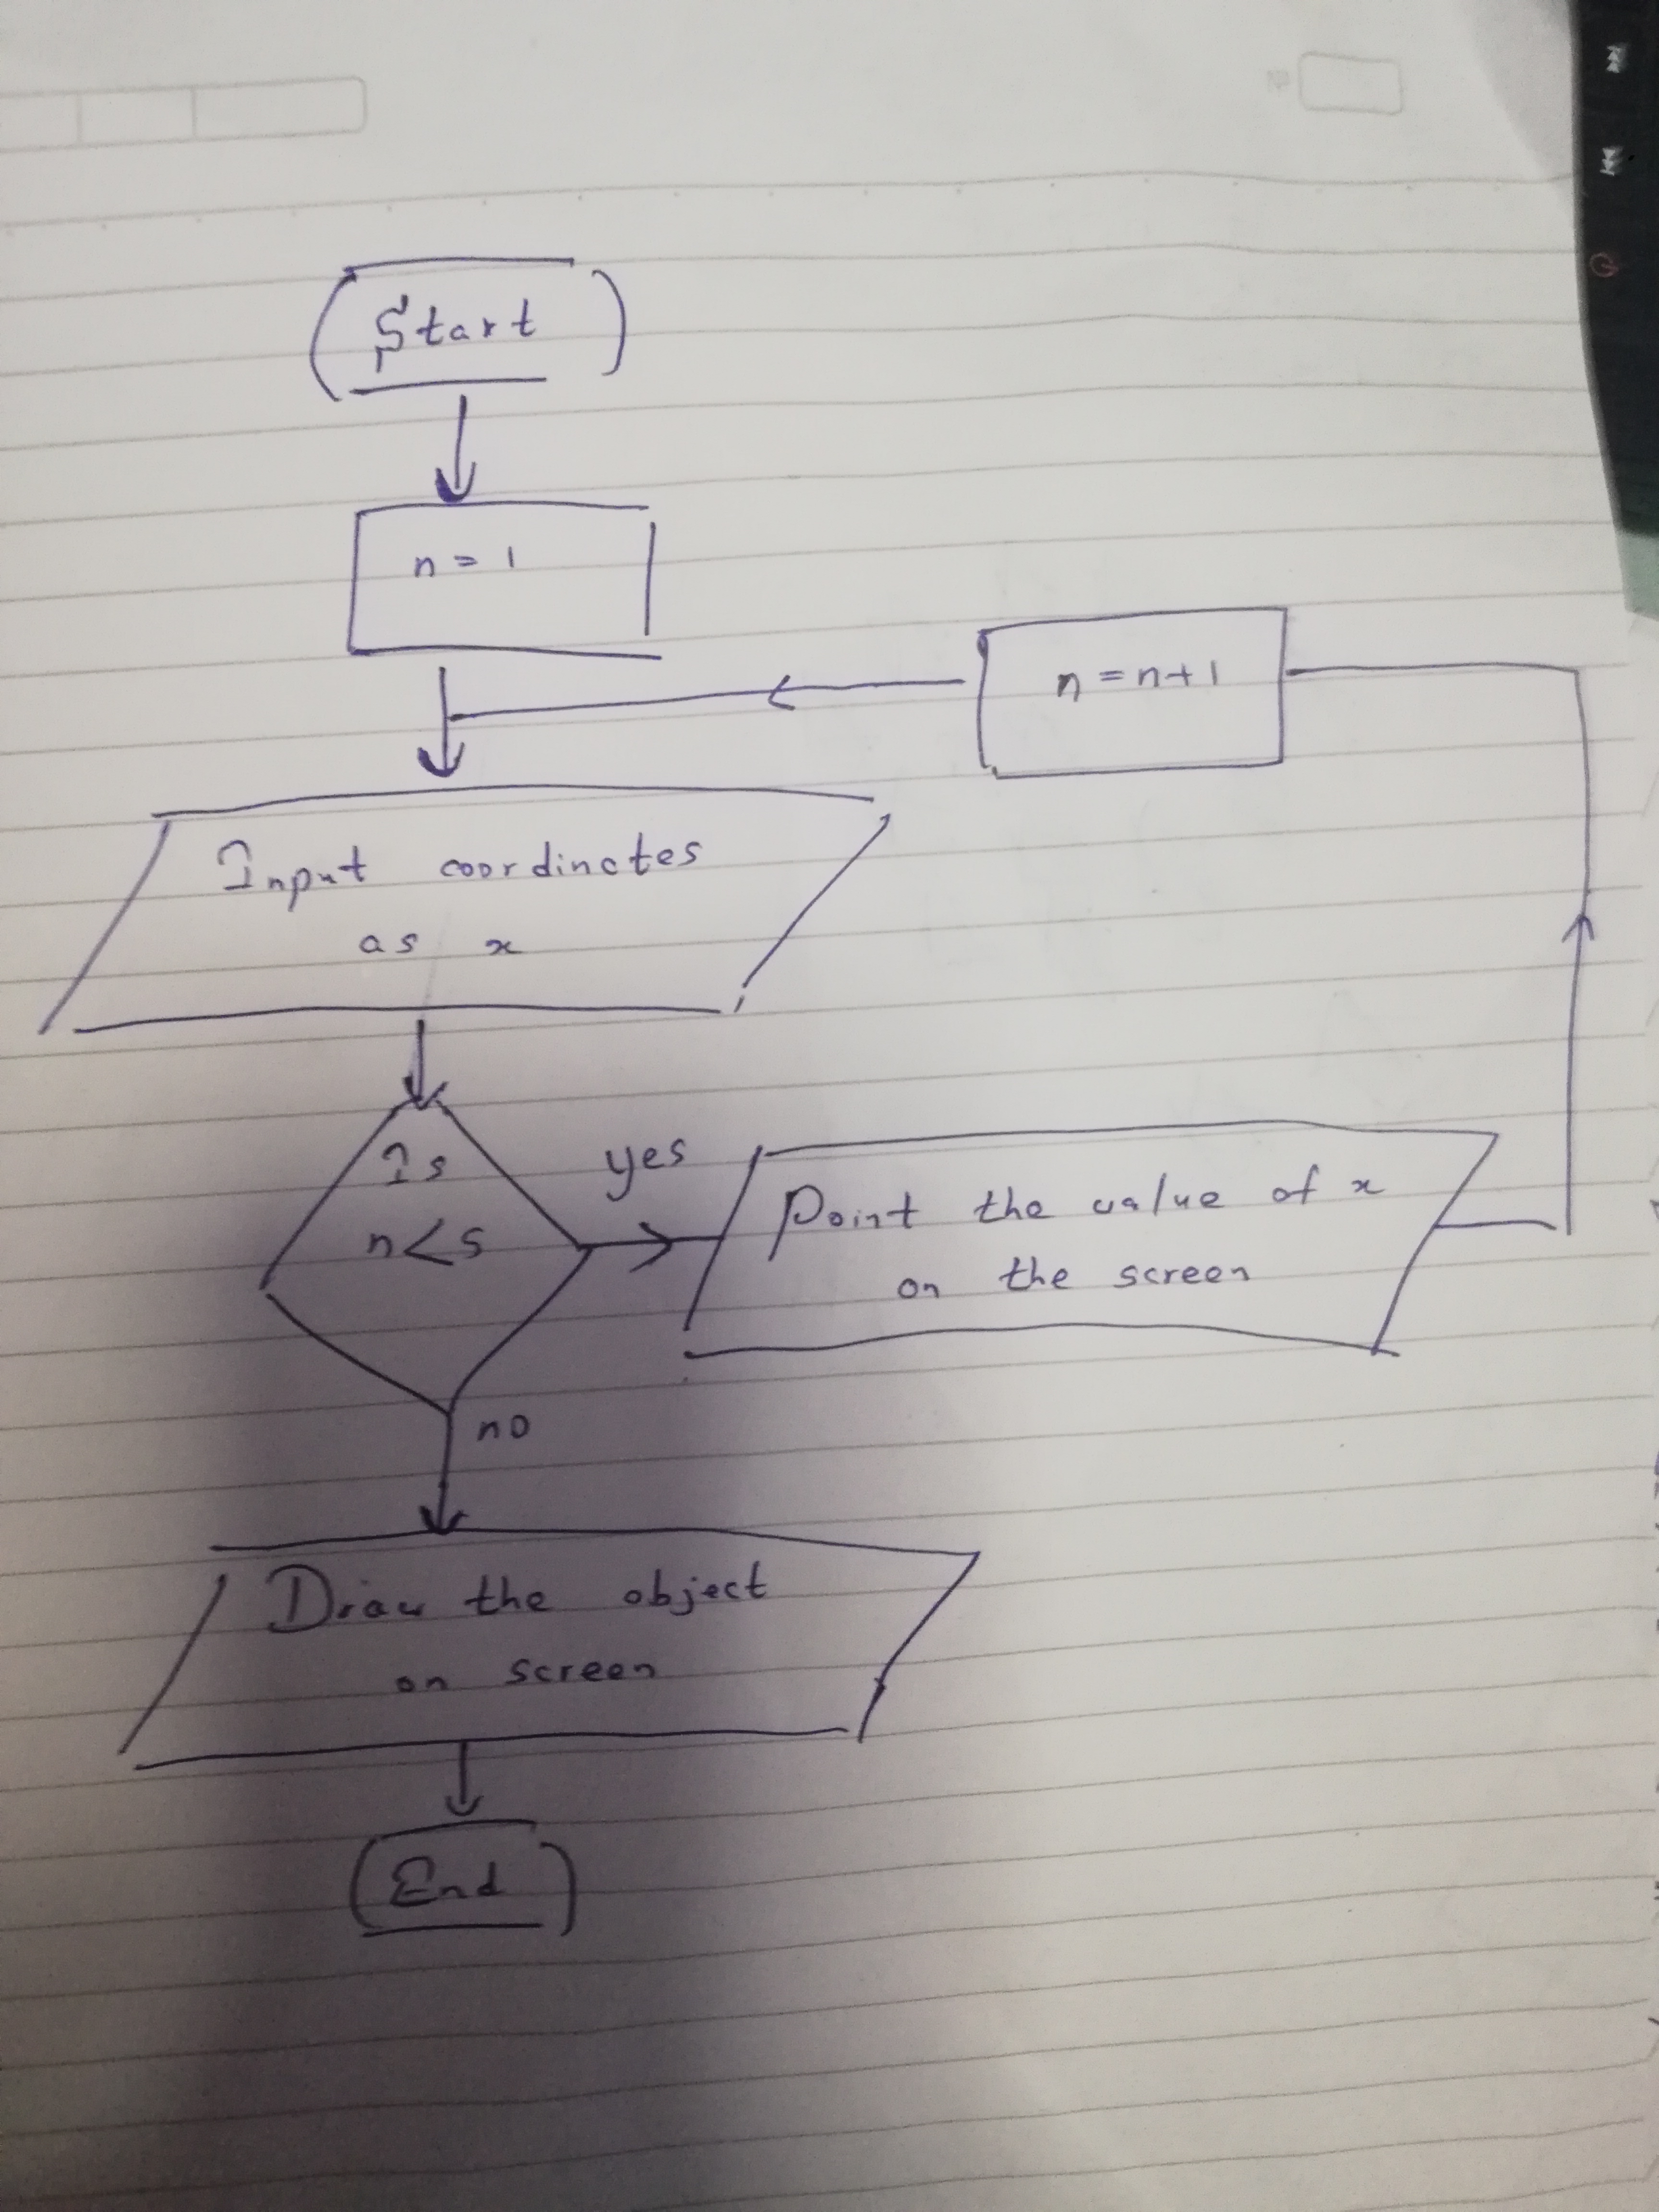 Start
n = 1
n = n+1
Input coordinates
as x
Is
n<5
yes
Point the value of x
on the screen
no
Draw the object
on screen
End